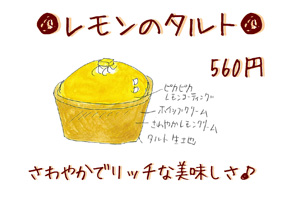 レモンのタルト
560円
ピカピカ
レモンコーティング
ホイップクリーム
さわやかレモンクリーム
タルト生地
さわやかでリッチな美味しさ♪